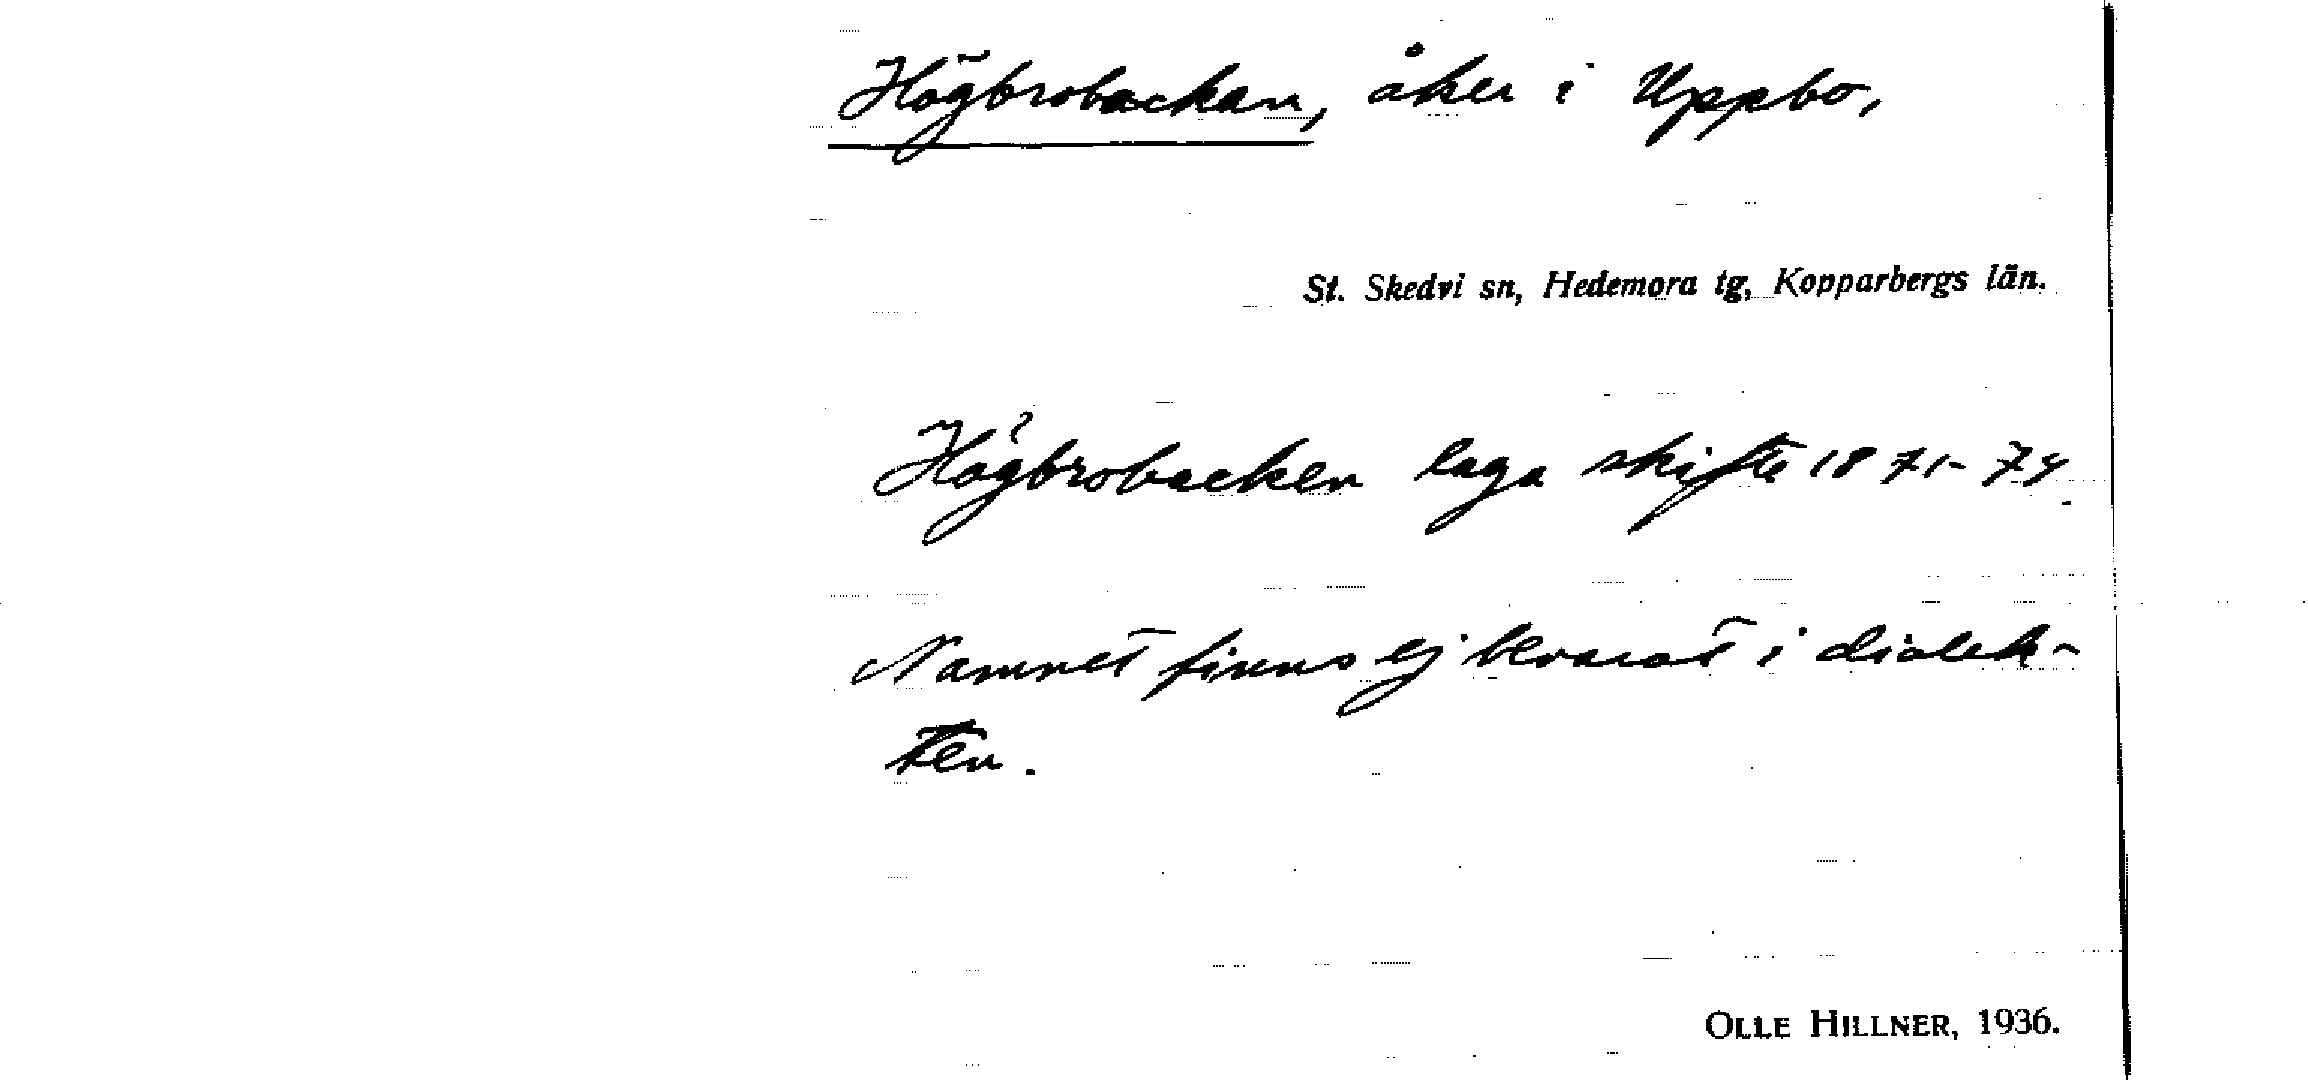 Högbrobackan, åker i Uppbo,
St. Skedvi sn, Hedemora tg, Kopparbergs län.
Högbrobacken laga skifte 1871-74
Namnet finns ej bevarat i dialek-
ten.
OLLE HILLNER, 1936.